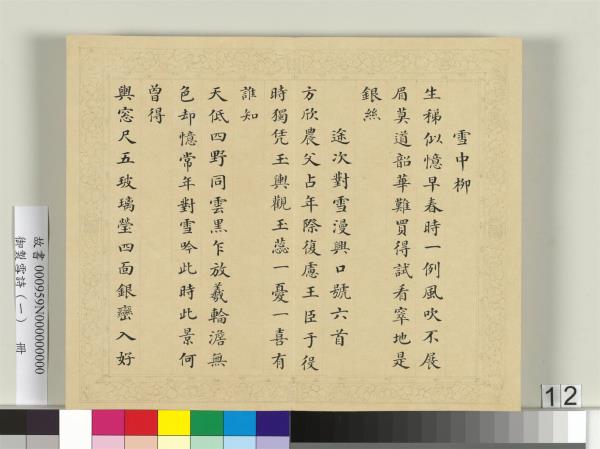 雪中柳
生稊似憶早春時一例風吹不展
眉莫道韶華難買得試看窣地是
銀絲
途次對雪漫興口號六首
方欣農父占年際復慮王臣于役
時獨凭玉輿觀玉蕊一憂一喜有
誰知
天低四野同雲黑乍放羲輪澹無
色却憶常年對雪吟此時此景何
曾得
輿窓尺五玻璃瑩四面銀巒入好
故書 000959N000000000
御製雪詩(一) 冊
12